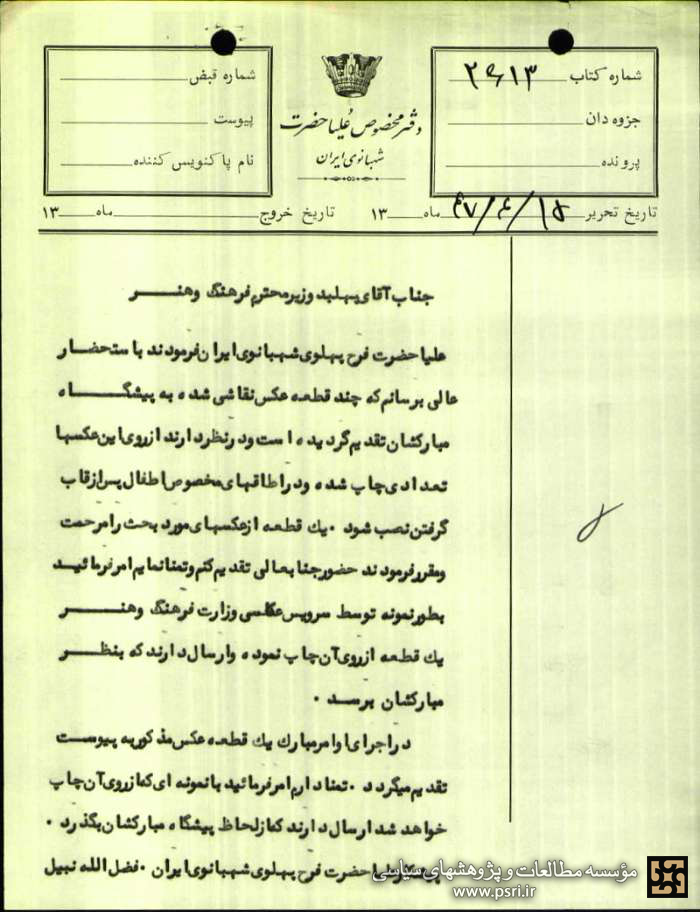 شماره کتاب ۲۶۱۳
جزوه دان
پرونده
دفتر مخصوص علیاحضرت
شهبانوی ایران
شماره قبض
پیوست
نام پاکنویس کننده
تاریخ تحریر ۴۷/۴/۱۵ ماه ۱۳ تاریخ خروج ماه ۱۳
جناب آقای پهلبد وزیر محترم فرهنگ وهنر
علیاحضرت فرح پهلوی شهبانوی ایران فرمودند باستحضار
عالی برسانم که چند قطعه عکس نقاشی شده به پیشگاه
مبارکشان تقدیم گردیده است ودرنظر دارند ازروی این عکسها
تعدادی چاپ شده ودراطاقهای مخصوص اطفال پس ازقاب
گرفتن نصب شود . یك قطعه ازعکسهای مورد بحث رامرحمت
ومقررفرمودند حضورجنابعالی تقدیم کنم وتمنانمایم امرفرمائید
بطورنمونه توسط سرویس عکاسی وزارت فرهنگ وهنر
یك قطعه ازروی آن چاپ نموده وارسال دارند که بنظر
مبارکشان برسد .
دراجرای اوامرمبارك یك قطعه عکس مذکوربه پیوست
تقدیم میگردد . تمنادارم امرفرمائید بانمونه ای که ازروی آن چاپ
خواهد شد ارسال دارند که ازلحاظ پیشگاه مبارکشان بگذرد .
علیاحضرت فرح پهلوی شهبانوی ایران . فضل الله نبیل
مؤسسه مطالعات و پژوهشهای سیاسی
www.psri.ir